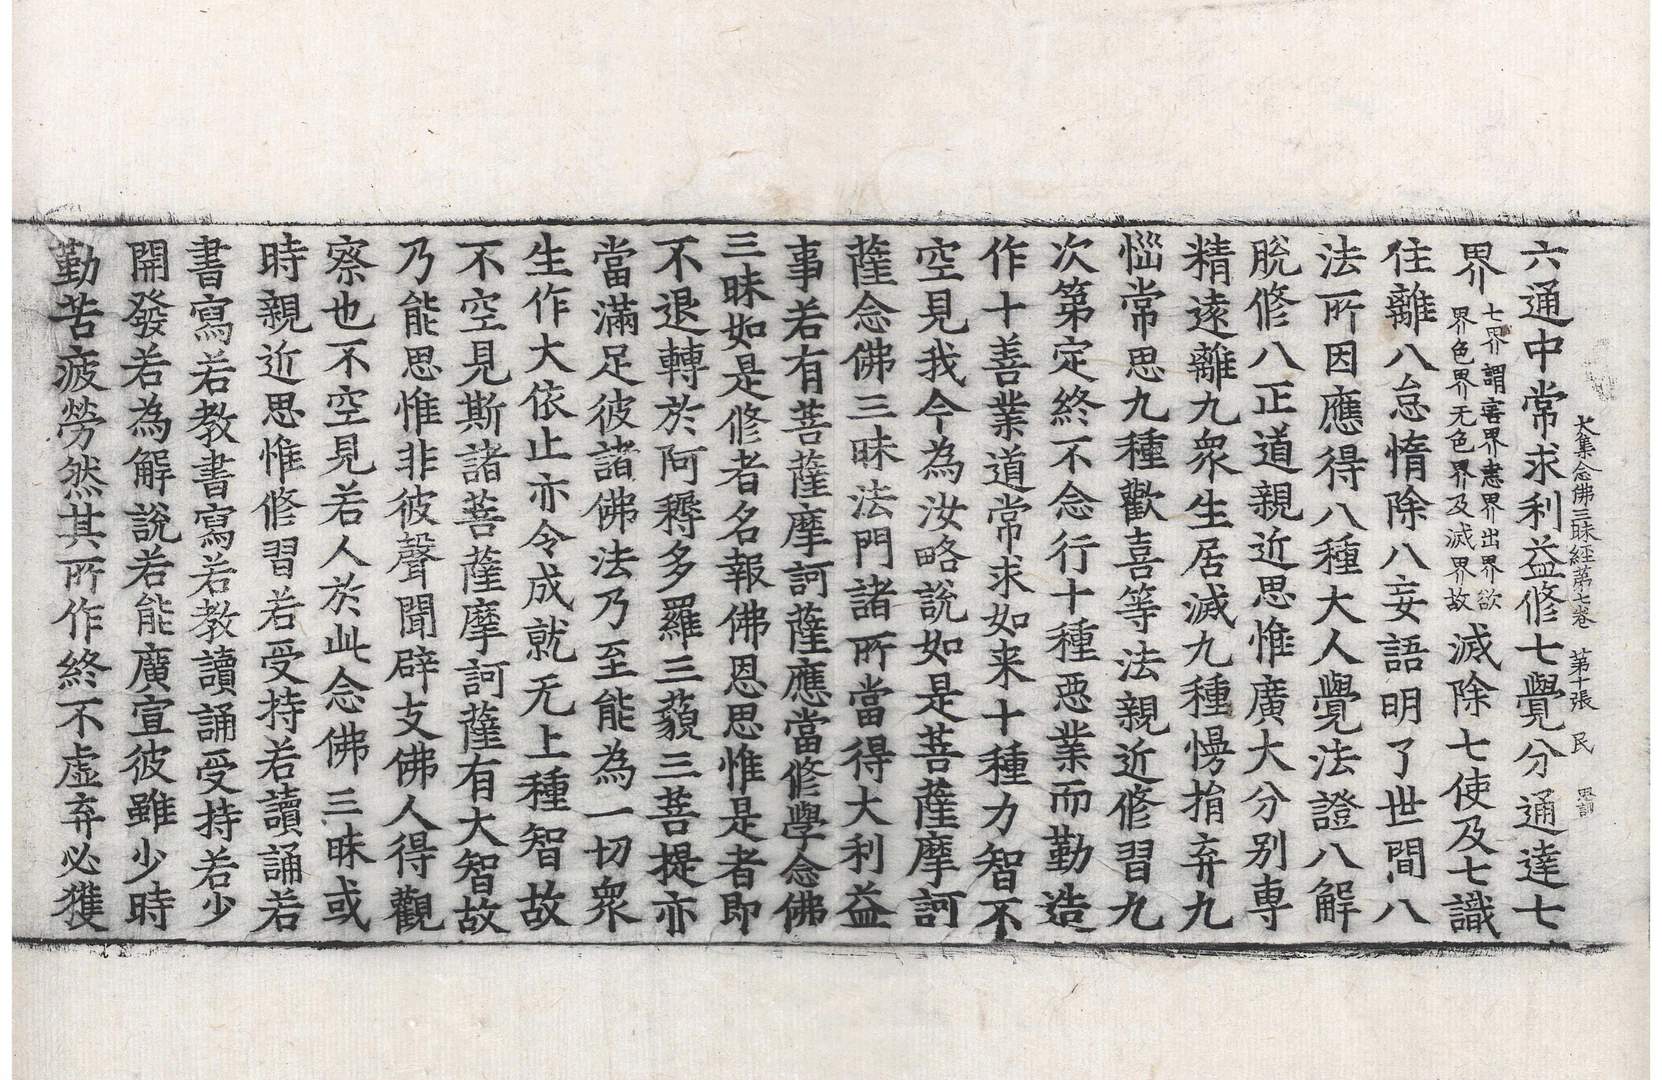 大集念佛三昧經第七卷 第十張 民
六通中常求利益修七覺分通達七
界七界謂害界恚界出界欲
界色界无色界及滅界故滅除七使及七識
住離八怠惰除八妄語明了世間八
法所因應得八種大人覺法證八解
脫修八正道親近思惟廣大分別專
精遠離九衆生居滅九種慢捐弃九
惱常思九種歡喜等法親近修習九
次第定終不念行十種惡業而勤造
作十善業道常求如来十種力智不
空見我今為汝略說如是菩薩摩訶
薩念佛三昧法門諸所當得大利益
事若有菩薩摩訶薩應當修學念佛
三昧如是修者名報佛恩思惟是者即
不退轉於阿耨多羅三藐三菩提亦
當滿足彼諸佛法乃至能為一切衆
生作大依止亦令成就无上種智故
不空見斯諸菩薩摩訶薩有大智故
乃能思惟非彼聲聞辟支佛人得觀
察也不空見若人於此念佛三昧或
時親近思惟修習若受持若讀誦若
書寫若教書寫若教讀誦受持若少
開發若為解說若能廣宣彼雖少時
勤苦疲勞然其所作終不虛弃必獲